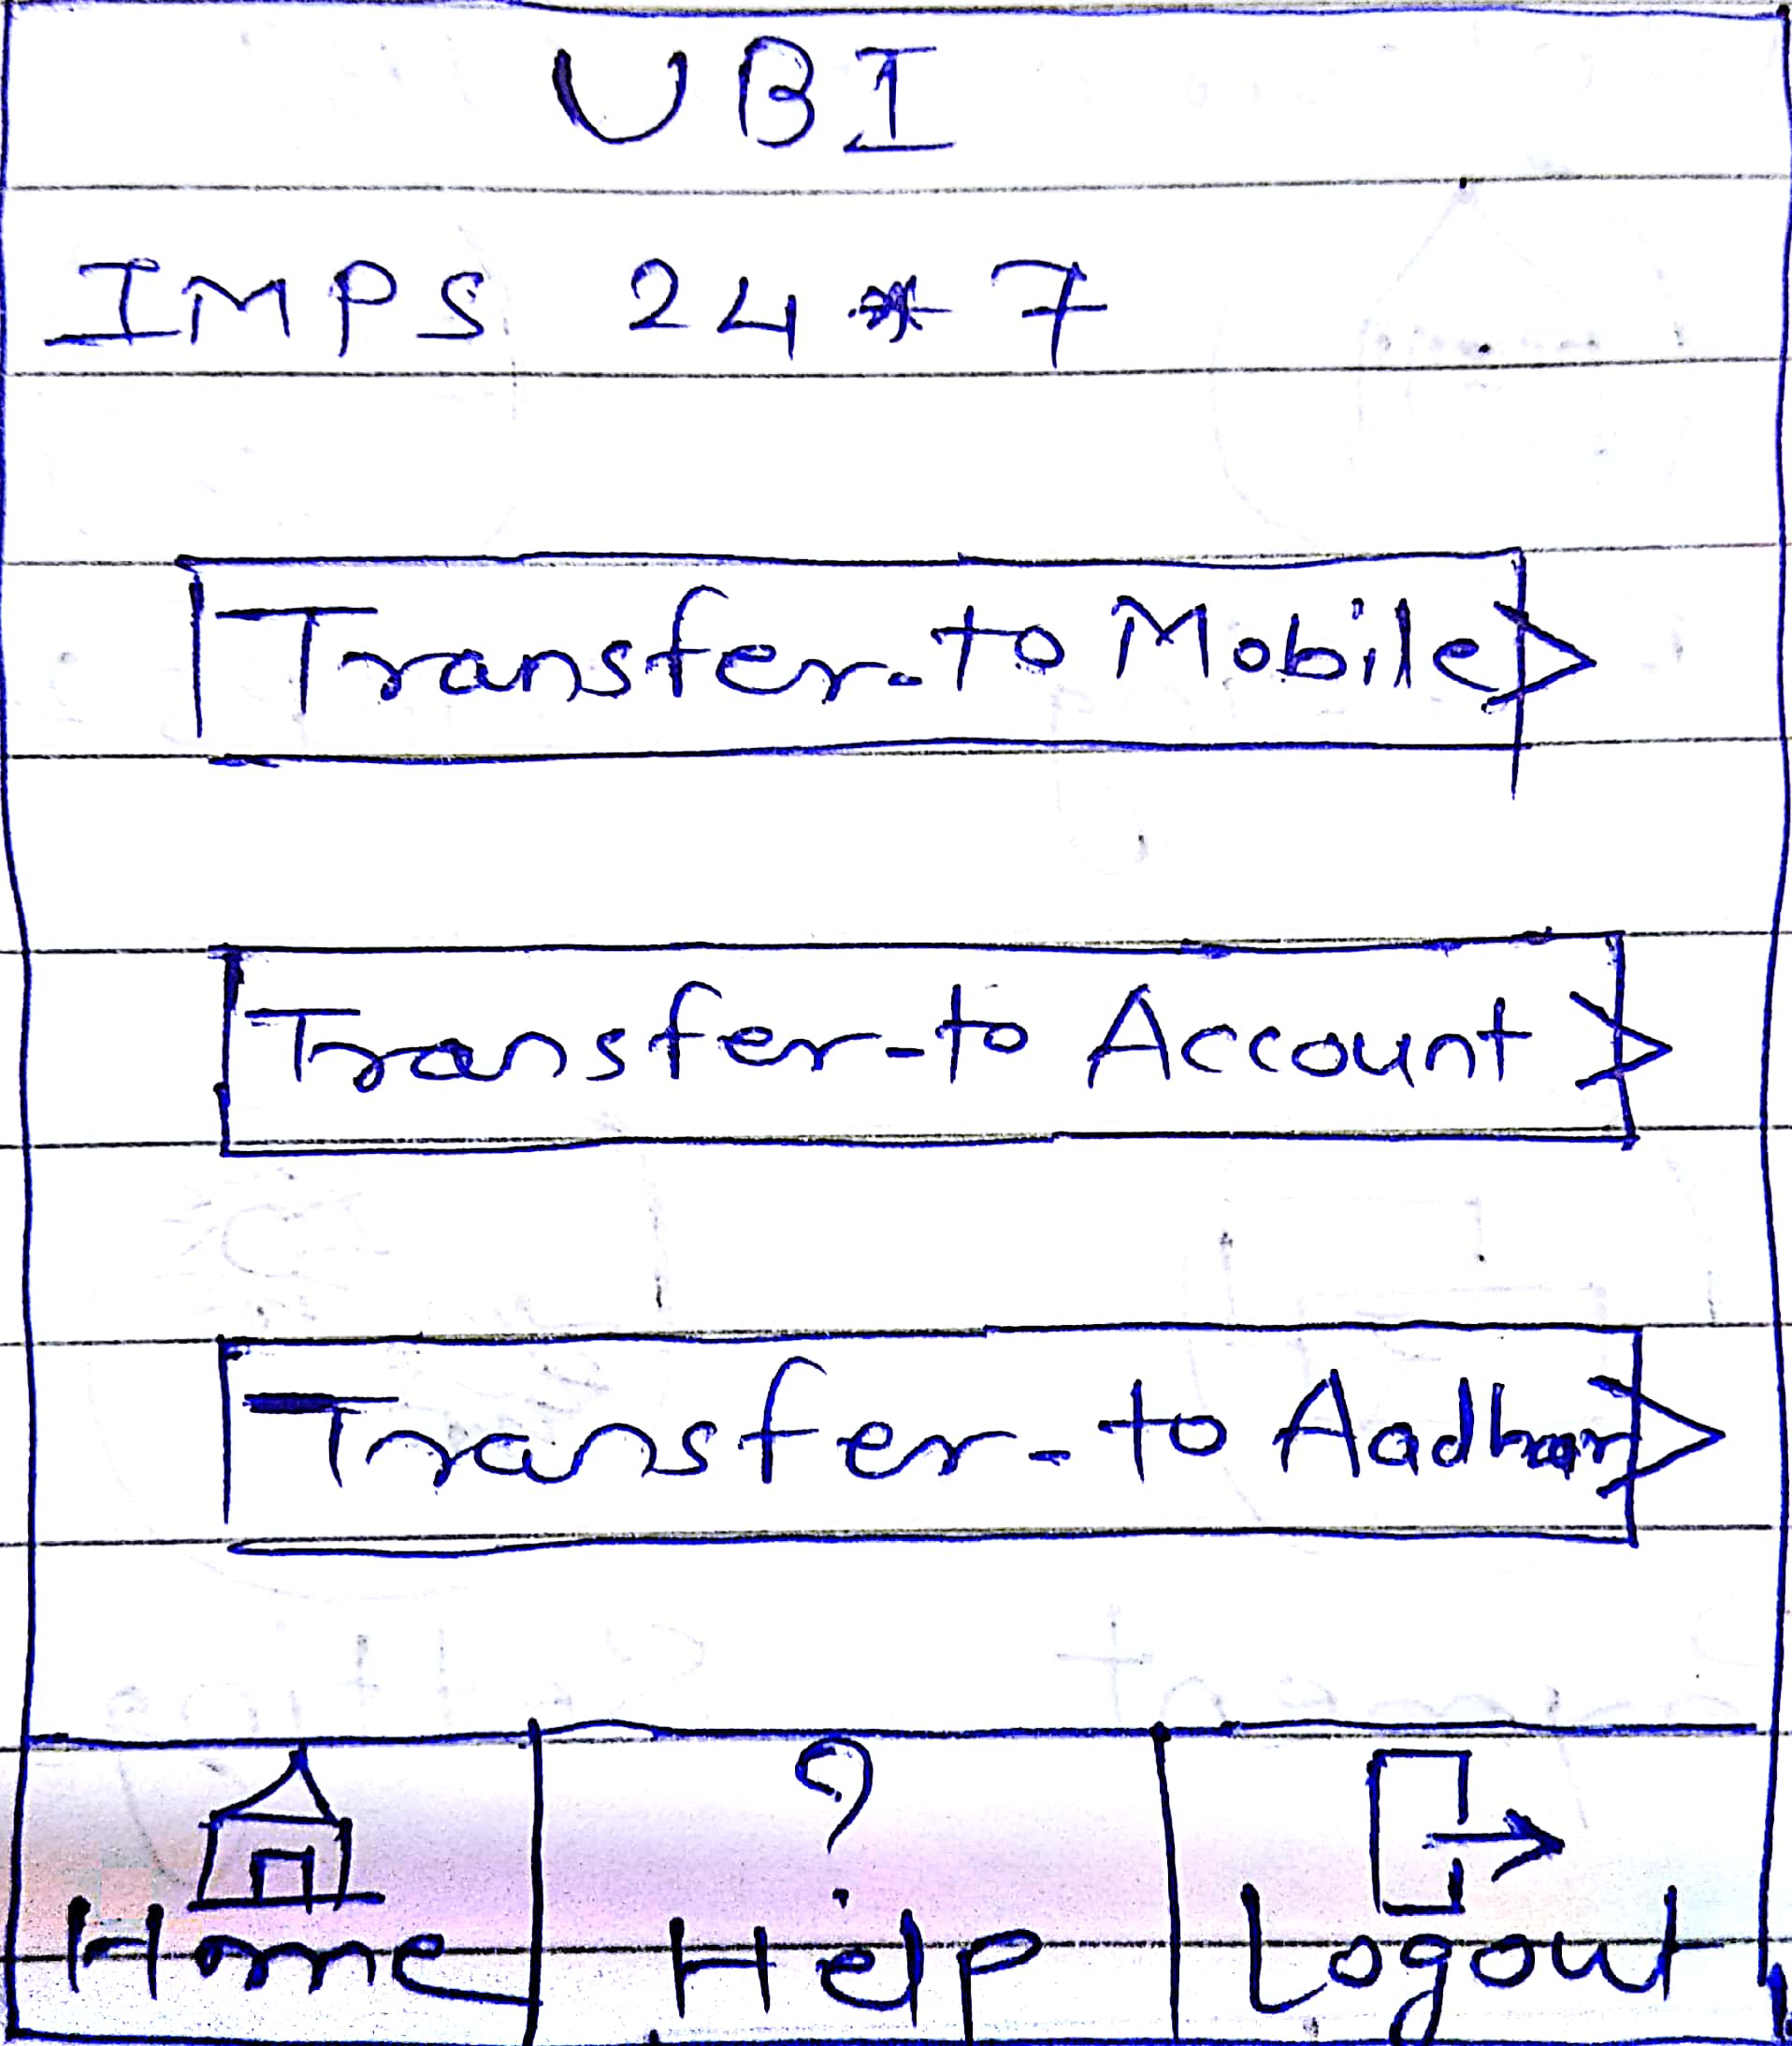 UBI
IMPS 24*7
Transfer-to Mobile >
Transfer-to Account >
Transfer-to Aadhar >
?
Home Help Logout